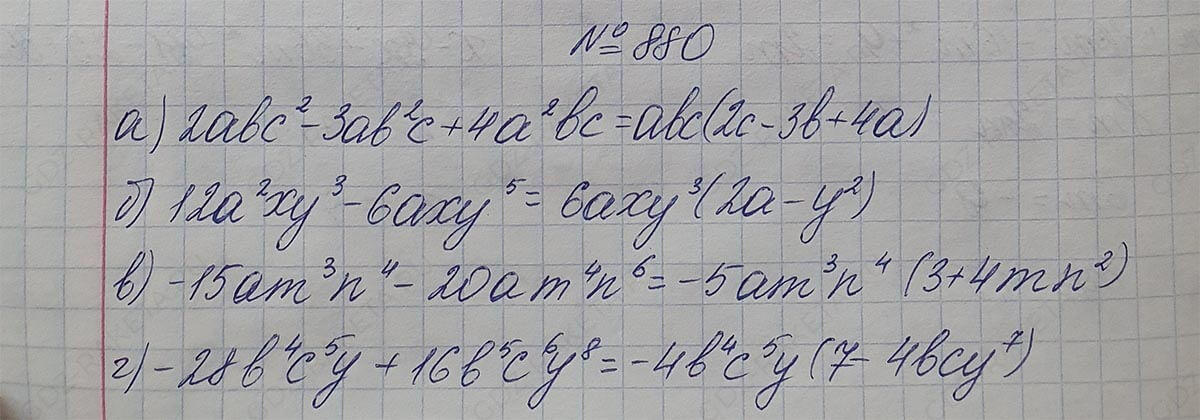 № 880
а) 2abc² - 3ab²c + 4a²bc = abc(2c - 3b + 4a)
б) 12a²xy³ - 6axy⁵ = 6axy³(2a - y²)
в) -15am³n⁴ - 20am⁴n⁶ = -5am³n⁴ (3 + 4mn²)
г) -28b⁴c⁵y + 16b⁵c⁶y⁸ = -4b⁴c⁵y (7 - 4bcy⁷)